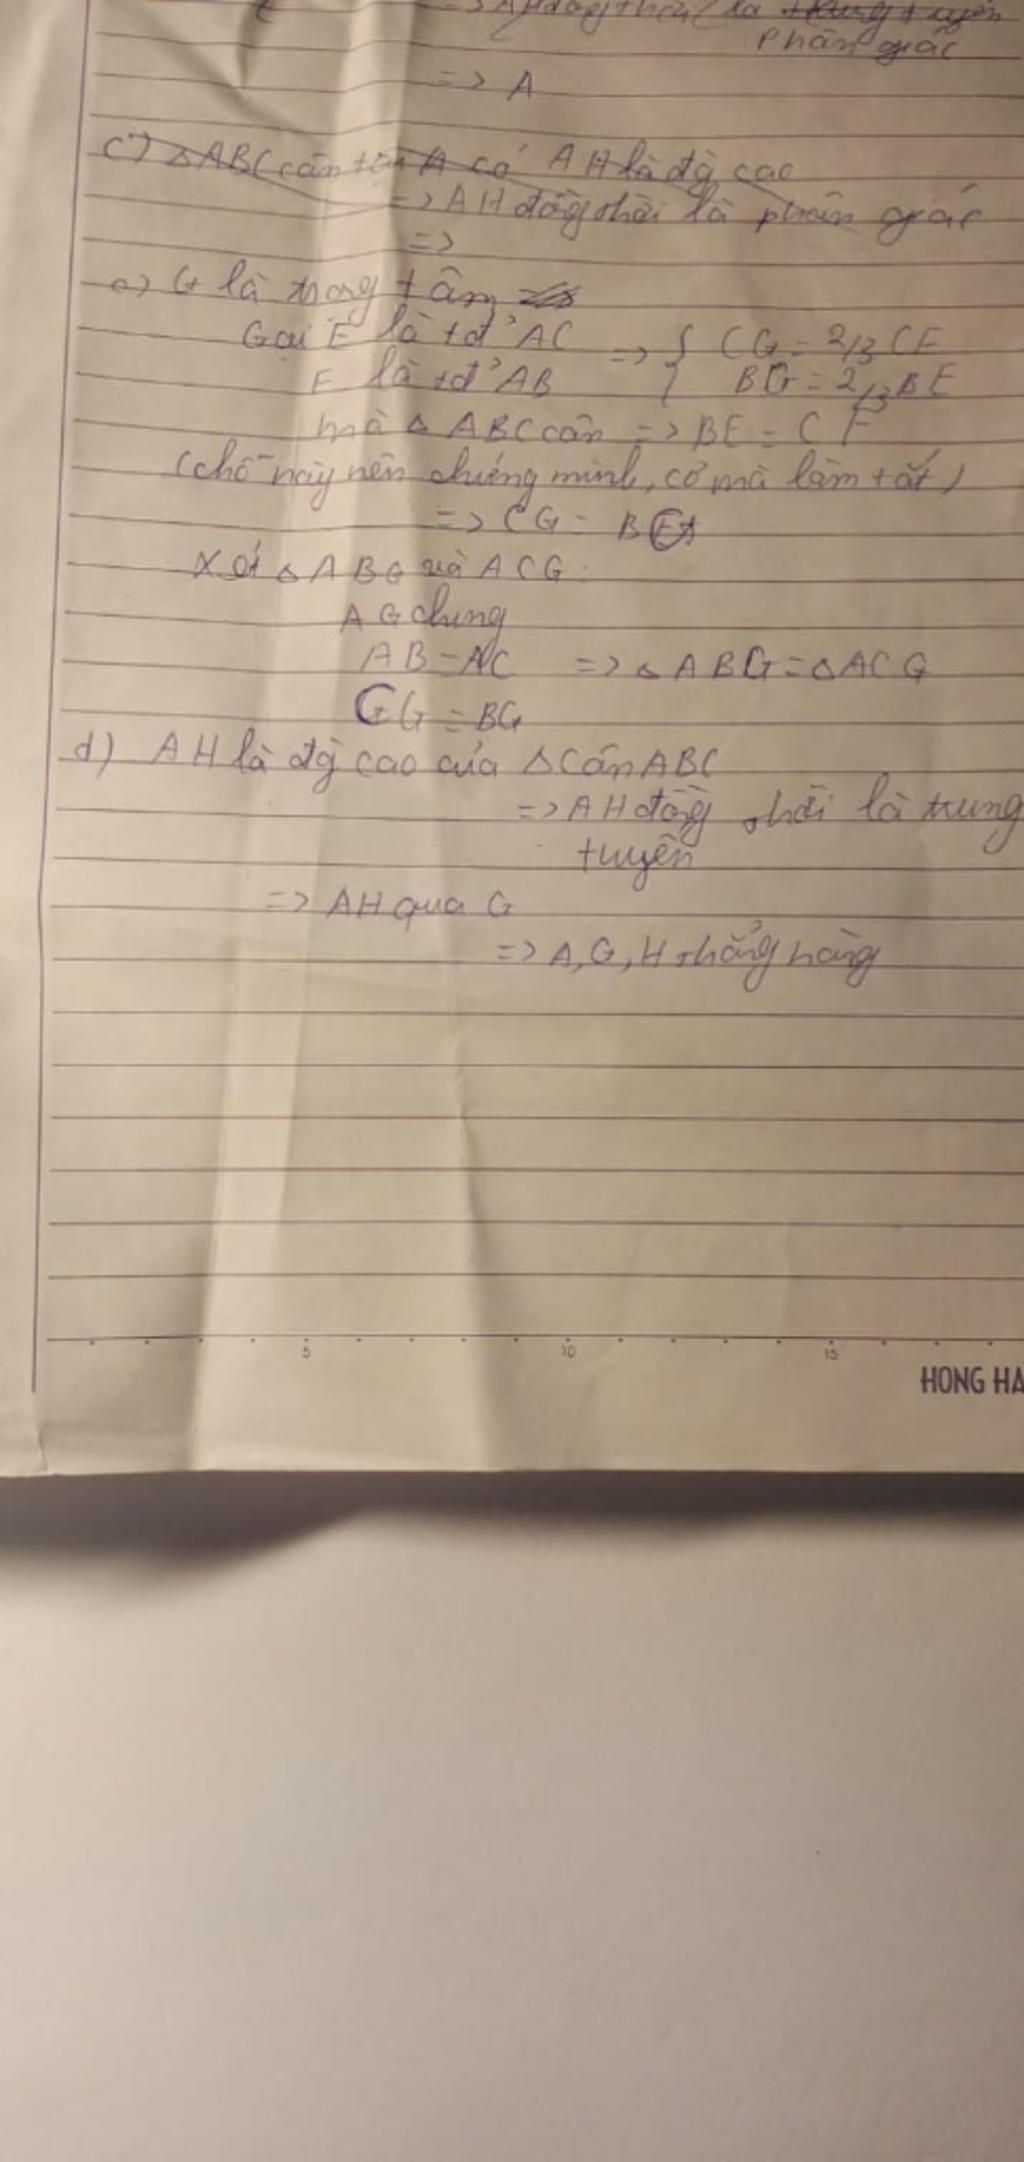 AH đồng thời là trung tuyến
phân giác
=> A
c) △ABC cân tại A có AH là đg cao
=> AH đồng thời là phân giác
=>
c) G là trọng tâm
Gọi E là tđ' AC => { CG = 2/3 CF
F là tđ' AB BG = 2/3 BE
mà △ ABC cân => BE = CF
(chỗ này nên chứng minh, cơ mà làm tắt)
=> CG = BG
Xét △ ABG và ACG:
AG chung
AB = AC => △ ABG = △ ACG
CG = BG
d) AH là đg cao của △ cân ABC
=> AH đồng thời là trung
tuyến
=> AH qua G
=> A, G, H thẳng hàng
5 10 15
HONG HA